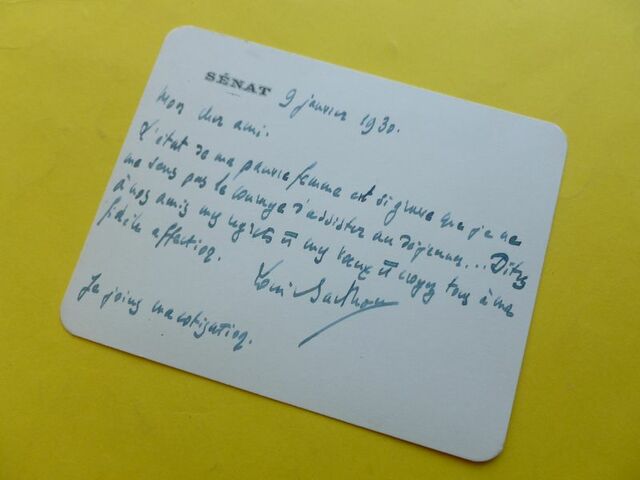 SÉNAT 9 janvier 1930.
Mon cher ami.
L'état de ma pauvre femme est si grave que je ne
me sens pas le courage d'assister au déjeuner... Dites
à nos amis mes regrets et mes vœux et croyez tous à ma
fidèle affection.
Louis Barthou
Je joins ma cotisation.